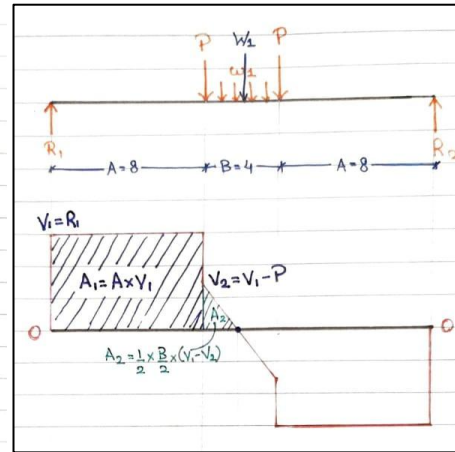 P W₁ P
ω₁
R₁ R₂
A=8 B=4 A=8
V₁=R₁
A₁=A×V₁
V₂=V₁-P
O O
A₂
A₂=1/2×B/2×(V₁-V₂)